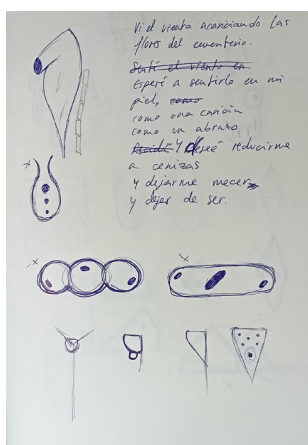 Vi el viento acariciando las
flores del cementerio.
Sentí el viento en
Esperé a sentirlo en mi
piel, como
como una caricia
como un abrazo
Decidí Y deseé reducirme
a cenizas
Y dejarme mecer
y dejar de ser.